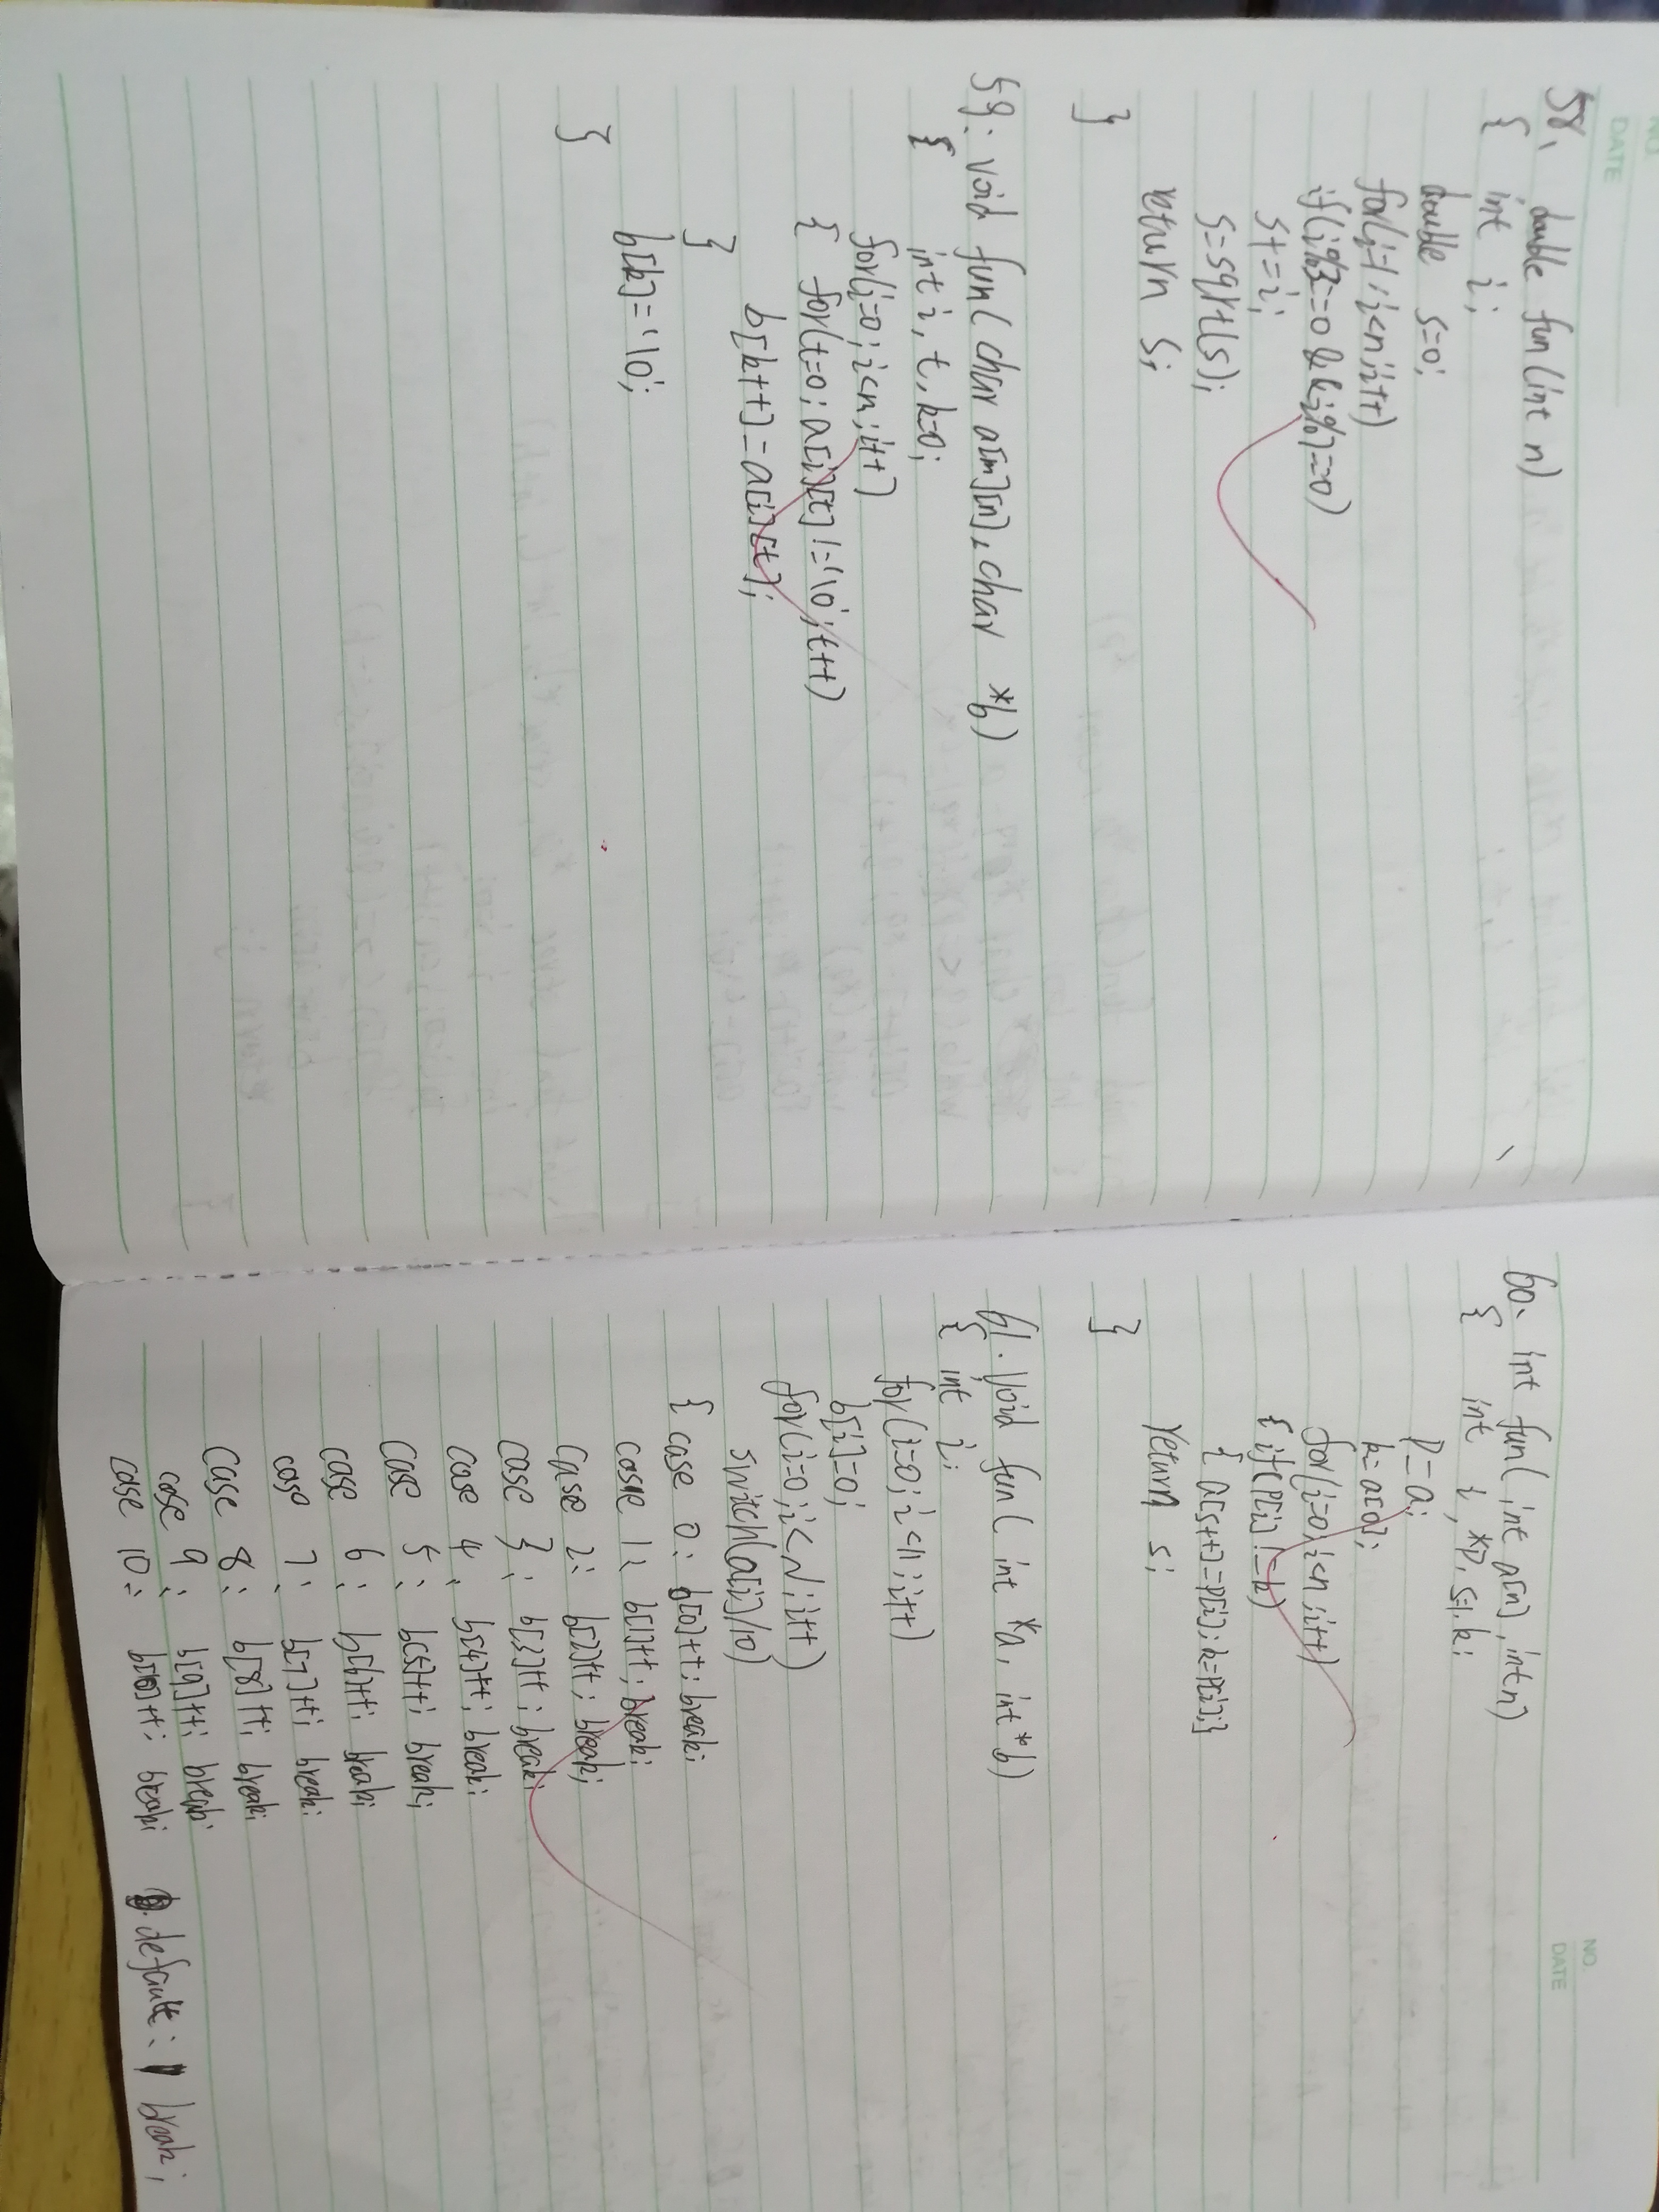 NO.
DATE
58. double fun(int n)
{ int i;
double s=0;
for(i=1;i<n;i++)
if(i%3==0&&i%7==0)
s+=i;
s=sqrt(s);
return s;
}
59. void fun(char a[m][n], char *b)
{
int i, t, k=0;
for(i=0;i<m;i++)
{ for(t=0; a[i][t]!='\0';t++)
b[k++]=a[i][t];
}
b[k]='\0';
}
NO.
DATE
60. int fun(int a[n], int n)
{ int i, *p, s=1, k;
p=a;
k=a[0];
for(i=0;i<n;i++)
{ if(p[i]!=k)
{ a[s++]=p[i];k=p[i];}
return s;
}
61. void fun(int *a, int *b)
{ int i;
for(i=0;i<11;i++)
b[i]=0;
for(i=0;i<N;i++)
switch(a[i]/10)
{ case 0: b[0]++; break;
case 1: b[1]++; break;
case 2: b[2]++; break;
case 3: b[3]++; break;
case 4: b[4]++; break;
case 5: b[5]++; break;
case 6: b[6]++; break;
case 7: b[7]++; break;
case 8: b[8]++; break;
case 9: b[9]++; break;
case 10: b[10]++; break; default: break;